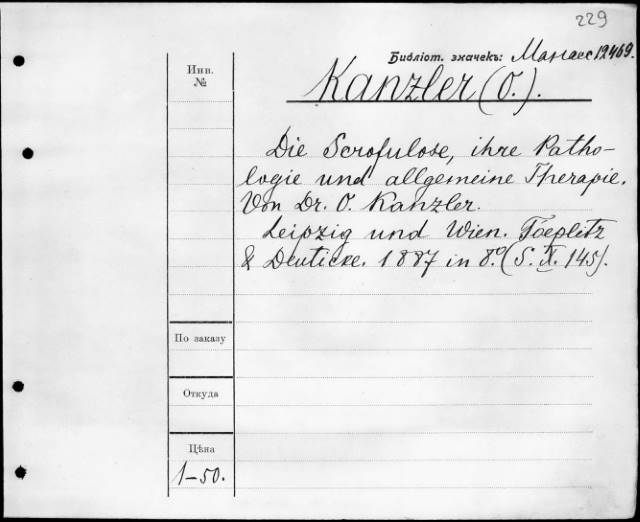 229
Библіот. значекъ: Манасс 12469.
Инв.
№
Kanzler (O.).
Die Scrofulose, ihre Patho-
logie und allgemeine Therapie.
Von Dr. O. Kanzler.
Leipzig und Wien. Töeplitz
& Deuticke. 1887 in 8.º (S. X. 145).
По заказу
Откуда
Цѣна
1-50.